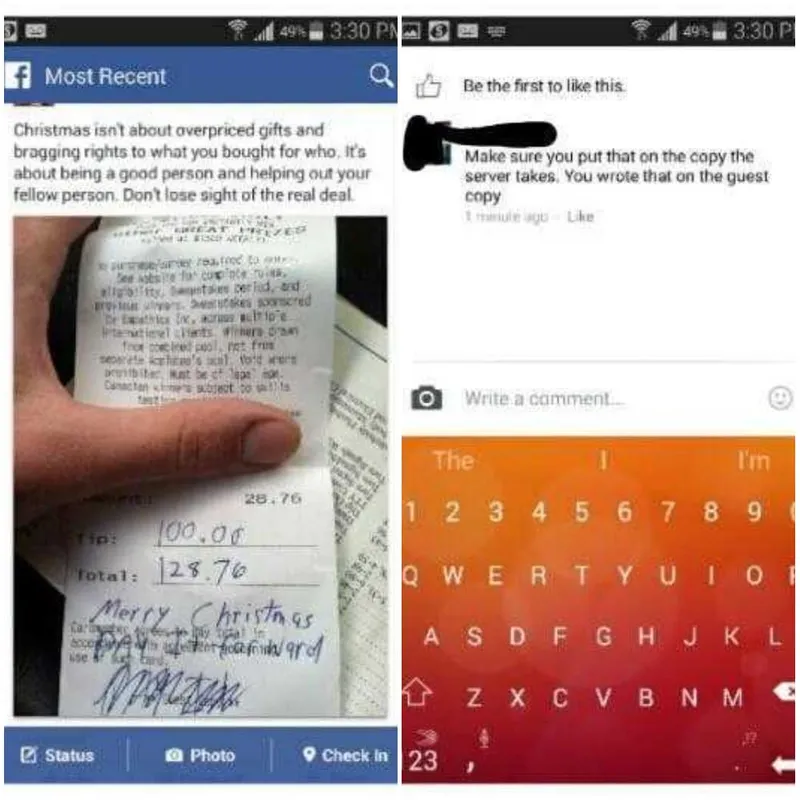 49% 3:30 PM
Most Recent
Christmas isn't about overpriced gifts and
bragging rights to what you bought for who. It's
about being a good person and helping out your
fellow person. Don't lose sight of the real deal.
GREAT PRIZES
See website for complete rules,
eligibility, sweepstakes period, and
previous winners. Sweepstakes sponsored
by Empathica Inc. across multiple
international clients. Winners drawn
from combined pool, not from
separate pool. Void where
prohibited. Must be of legal age.
Canadian winners subject to skills
28.76
Tip: 100.00
Total: 128.76
Merry Christmas
Cardmember agrees to pay total in
Pay it forward
use of such card.
Status
Photo
Check In
49% 3:30 P
Be the first to like this.
Make sure you put that on the copy the
server takes. You wrote that on the guest
copy
1 minute ago Like
Write a comment...
The I I'm
1 2 3 4 5 6 7 8 9
Q W E R T Y U I O
A S D F G H J K L
Z X C V B N M
123 , .